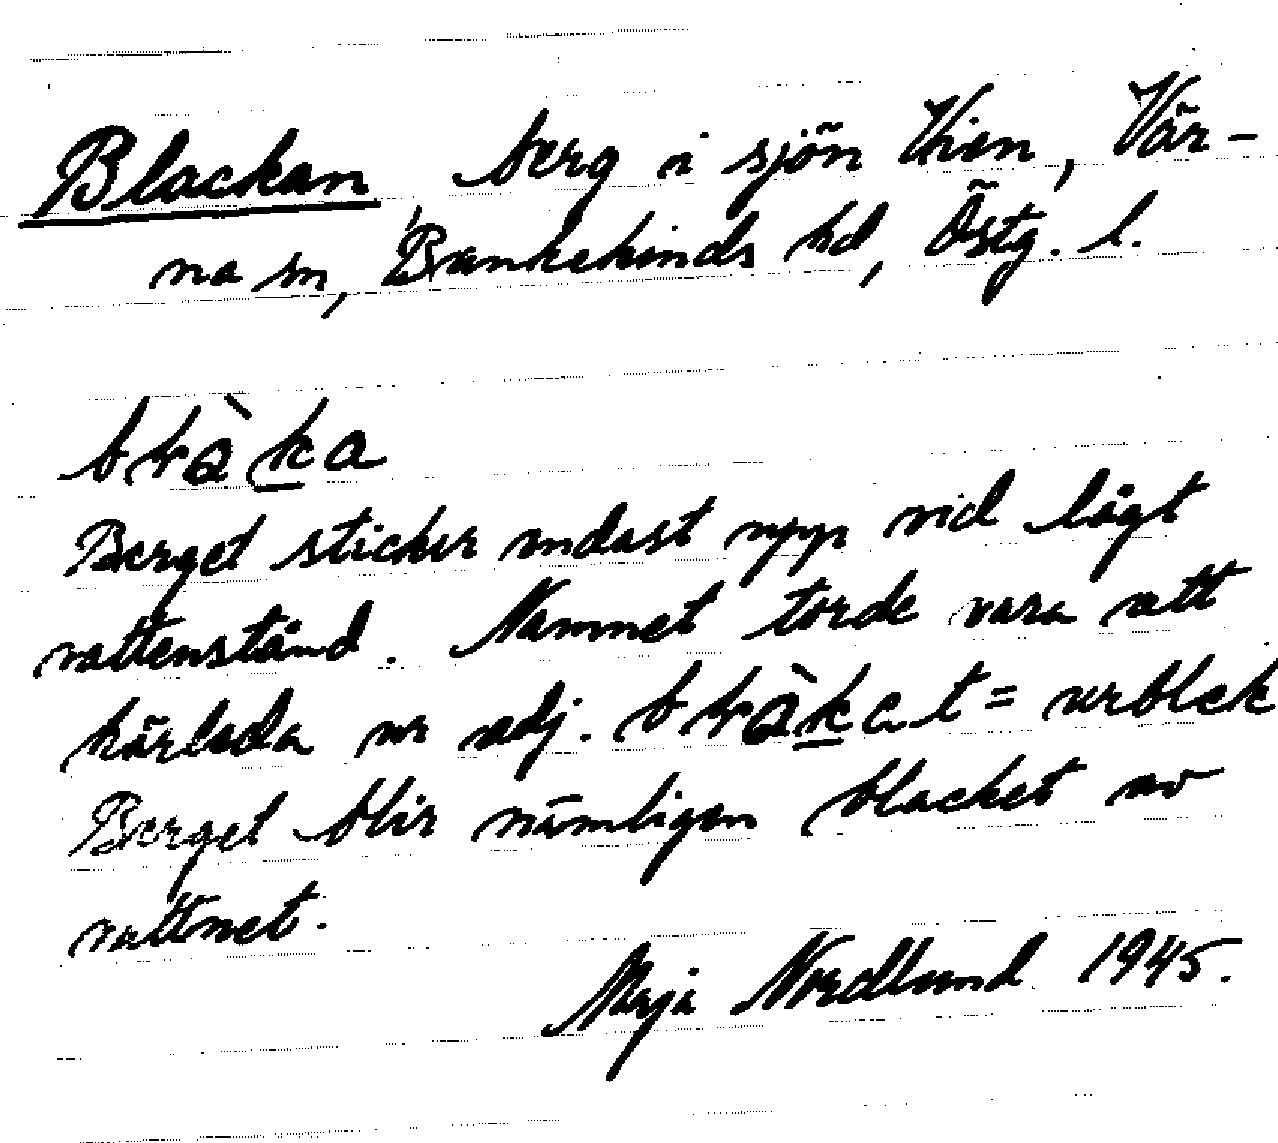 Blackan, berg i sjön Vien, Vär-
na sn, Bankekinds hd, Östg. l.
blàka
Berget sticker endast upp vid lågt
vattenstånd. Namnet torde vara att
härleda ur adj. blàkat = urblekt
Berget blir nämligen blacket av
vattnet.
Maja Nordlund 1945.